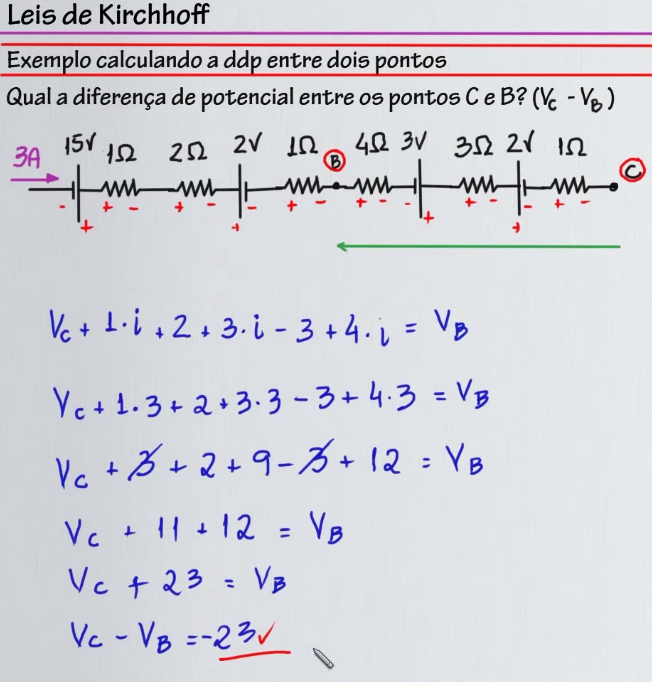 Leis de Kirchhoff
Exemplo calculando a ddp entre dois pontos
Qual a diferença de potencial entre os pontos C e B? (Vc - VB)
3A 15V 1Ω 2Ω 2V 1Ω B 4Ω 3V 3Ω 2V 1Ω C
- + - + - - + - + - - + - + -
+ + + +
Vc + 1·i + 2 + 3·i - 3 + 4·i = VB
Vc + 1·3 + 2 + 3·3 - 3 + 4·3 = VB
Vc + 3 + 2 + 9 - 3 + 12 = VB
Vc + 11 + 12 = VB
Vc + 23 = VB
Vc - VB = -23 ✓